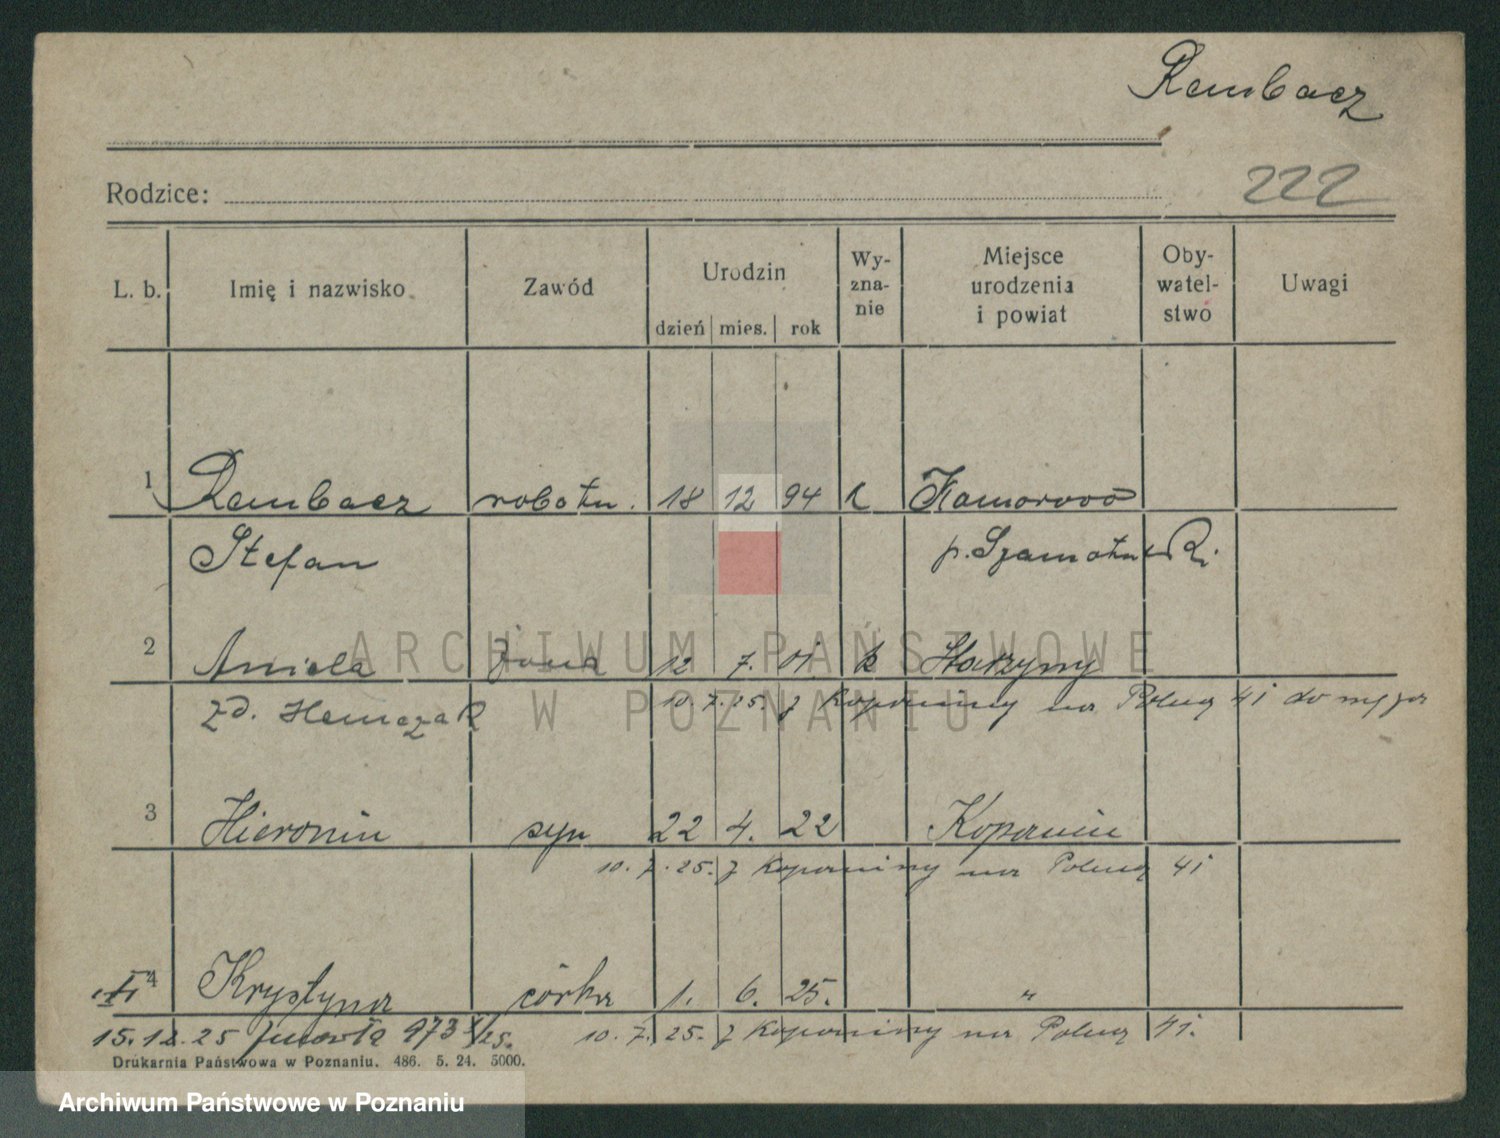 Rembacz
Rodzice:
222
L. b. Imię i nazwisko Zawód Urodzin dzień mies. rok Wy-zna-nie Miejsce urodzenia i powiat Oby-watel-stwo Uwagi
1 Rembacz robotn. 18 12 94 k Komorowo
Stefan p. Szamotuły R.
2 Aniela żona 12 7. 01. k
zd. 10. 7. 25. z Kopaniny na Polną 41 do męża
3 Hieronim syn 22 4. 22 Kopanin
10. 7. 25. z Kopaniny na Polną 41
4 Krystyna córka 1. 6. 25. "
15. 12. 25 zmarła 973 /25. 10. 7. 25. z Kopaniny na Polną 41.
Drukarnia Państwowa w Poznaniu. 486. 5. 24. 5000.
ARCHIWUM PAŃSTWOWE
W POZNANIU
Archiwum Państwowe w Poznaniu